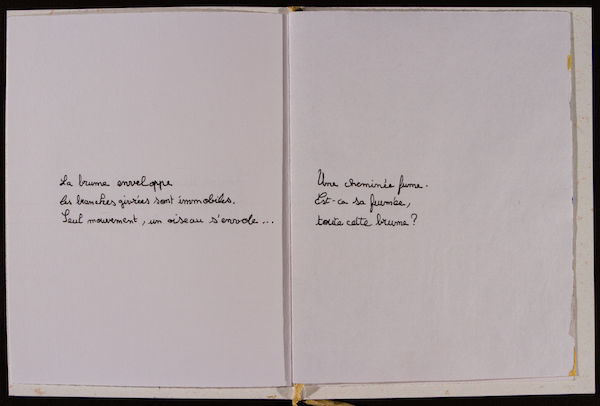 La brume enveloppe
les branches givrées sont immobiles.
Seul mouvement, un oiseau s'envole...
Une cheminée fume.
Est-ce sa fumée,
toute cette brume ?